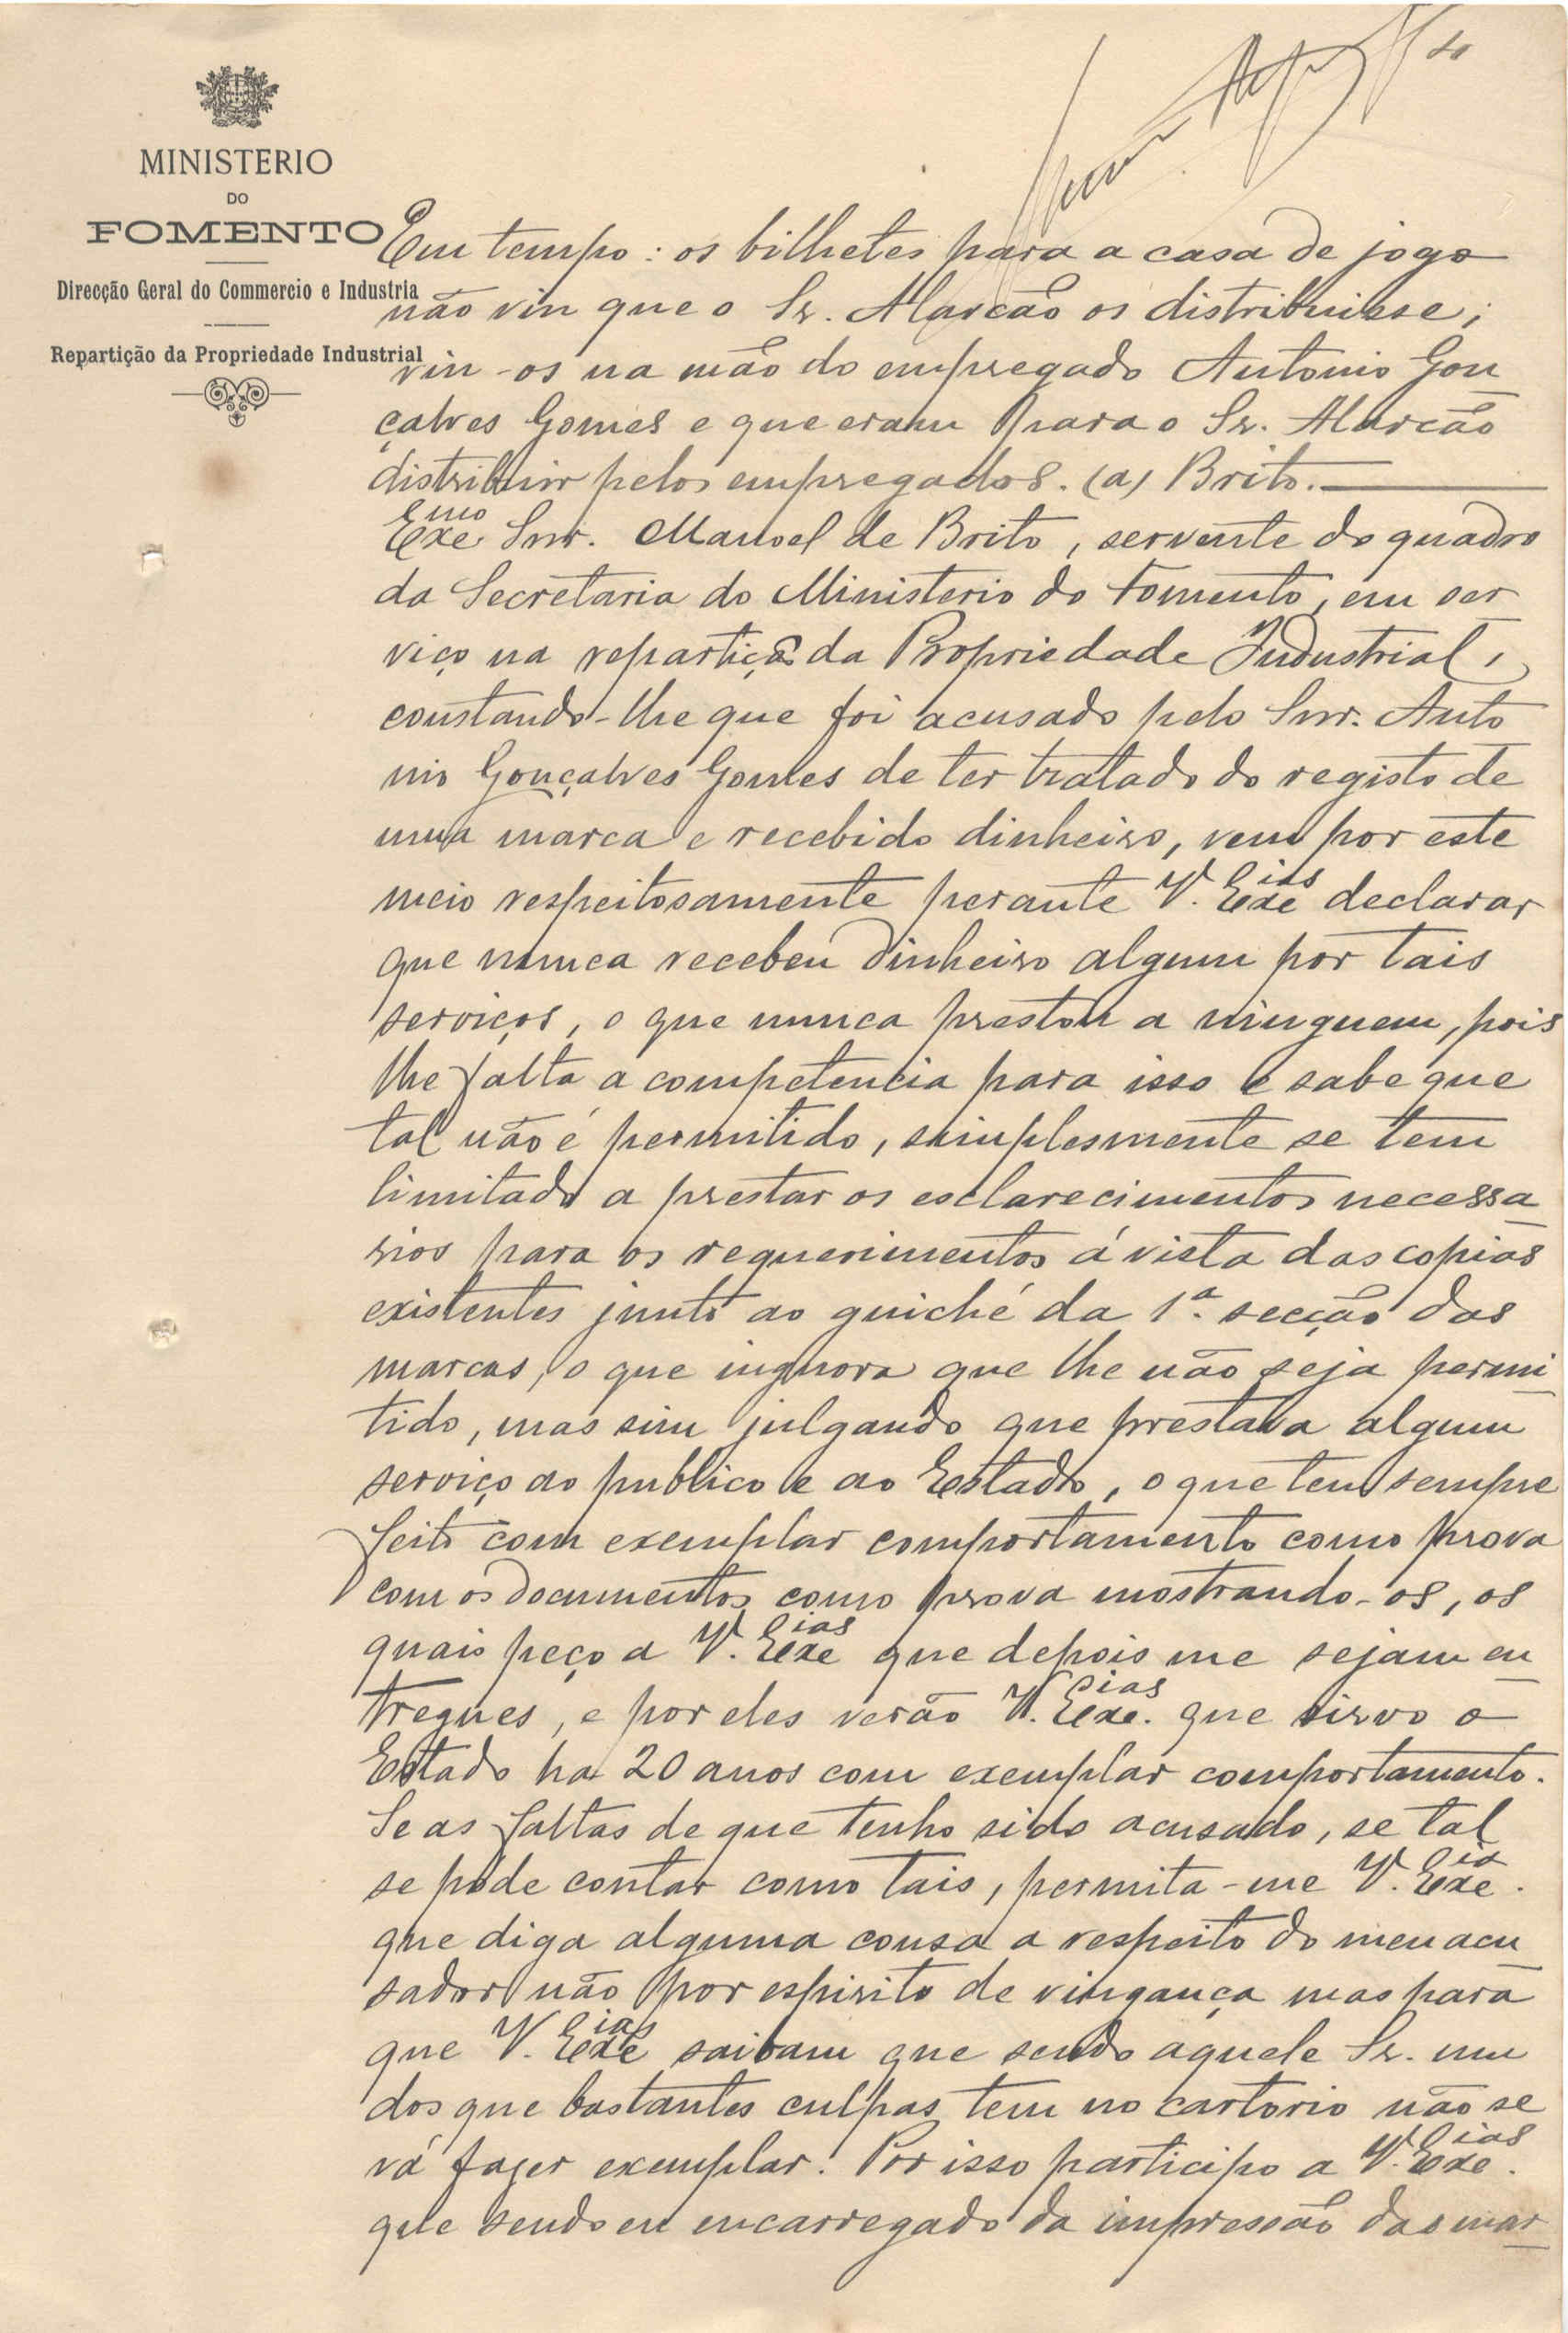 MINISTERIO
DO
FOMENTO
Direcção Geral do Commercio e Industria
Repartição da Propriedade Industrial
Em tempo: os bilhetes para a casa de jogo
não viu que o Sr. Alarcão os distribuisse;
viu-os na mão do empregado Antonio Gon
çalves Gomes e que eram para o Sr. Alarcão
distribuir pelos empregados. (a) Brito.
Exe.mo Snr. Manoel de Brito, servente do quadro
da Secretaria do Ministerio do Fomento, em ser
viço na repartição da Propriedade Industrial,
constando-lhe que foi acusado pelo Snr. Anto
nio Gonçalves Gomes de ter tratado do registo de
uma marca e recebido dinheiro, vem por este
meio respeitosamente perante V. Exe.ias declarar
que nunca recebeu dinheiro algum por tais
serviços, o que nunca prestou a ninguem, pois
lhe falta a competencia para isso e sabe que
tal não é permitido, simplesmente se tem
limitado a prestar os esclarecimentos necessa
rios para os requerimentos á vista das copias
existentes junto ao guiché da 1ª. secção das
marcas, o que ingnora que lhe não seja permi
tido, mas sim julgando que prestava algum
serviço ao publico e ao Estado, o que tem sempre
feito com exemplar comportamento como prova
com os documentos como prova mostrando-os, os
quais peço a V. Exe.ias que depois me sejam en
tregues, e por eles verão V. Exe.cias que sirvo o
Estado ha 20 anos com exemplar comportamento.
Se as faltas de que tenho sido acusado, se tal
se póde contar como tais, permita-me V. Exe.cia
que diga alguma cousa a respeito do meu acu
sador não por espirito de vingança mas para
que V. Exe.ias saibam que sendo aquele Sr. um
dos que bastantes culpas tem no cartorio não se
vá fazer exemplar. Por isso participo a V. Exe.cias
que sendo eu encarregado da impressão das mar